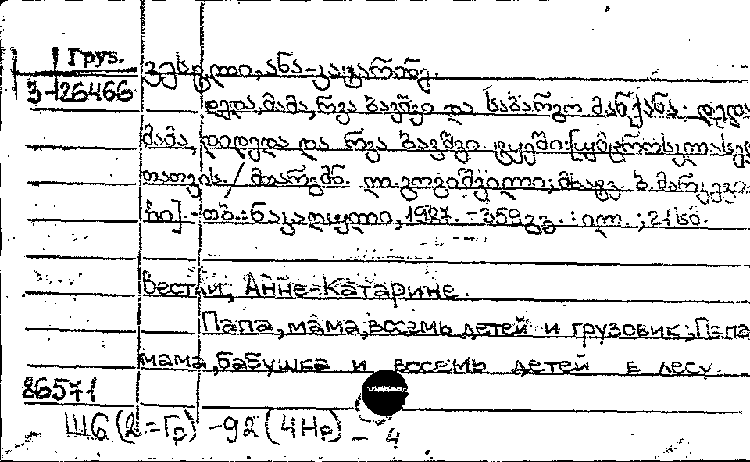 Груз.
3-126466 ვესტლი, ანა-კატარინე.
დედა, მამა, რვა ბავშვი და საბარგო მანქანა; დედა
მამა, დიდედა და რვა ბავშვი ტყეში:
თათვის / თარგმნ. მხატვ. ბ.
- თბ.: ნაკადული, 1987. - 359 გვ. : ილ. ; 21 სმ.
Вестли, Анне-Катарине.
Папа, мама, восемь детей и грузовик; Папа
мама, бабушка и восемь детей в лесу.
86571
Ш6(2=Гр) -92 (4Нр) - 4